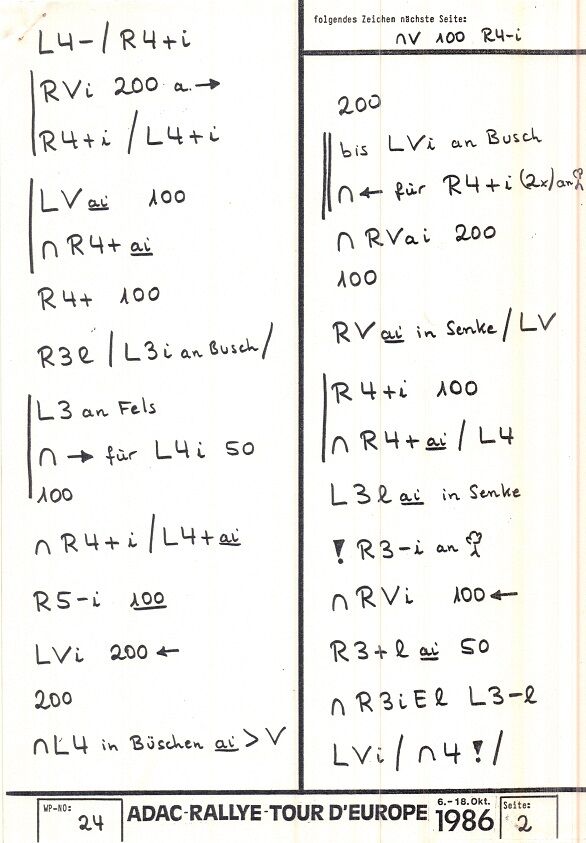 L4-/R4+i
RVi 200 a.→
R4+i/L4+i
LVai 100
∩R4+ai
R4+ 100
R3l/L3i an Busch/
L3 an Fels
∩→ für L4i 50
100
∩R4+i/L4+ai
R5-i 100
LVi 200←
200
∩L4 in Büschen ai>V
folgendes Zeichen nächste Seite:
∩V 100 R4-i
200
bis LVi an Busch
∩← für R4+i(2x)an
∩RVai 200
100
RVai in Senke/LV
R4+i 100
∩R4+ai/L4
L3lai in Senke
! R3-i an
∩RVi 100←
R3+lai 50
∩R3iEl L3-l
LVi/∩4!/
WP-NO: 24
ADAC-RALLYE-TOUR D'EUROPE 6.-18.Okt. 1986
Seite: 2